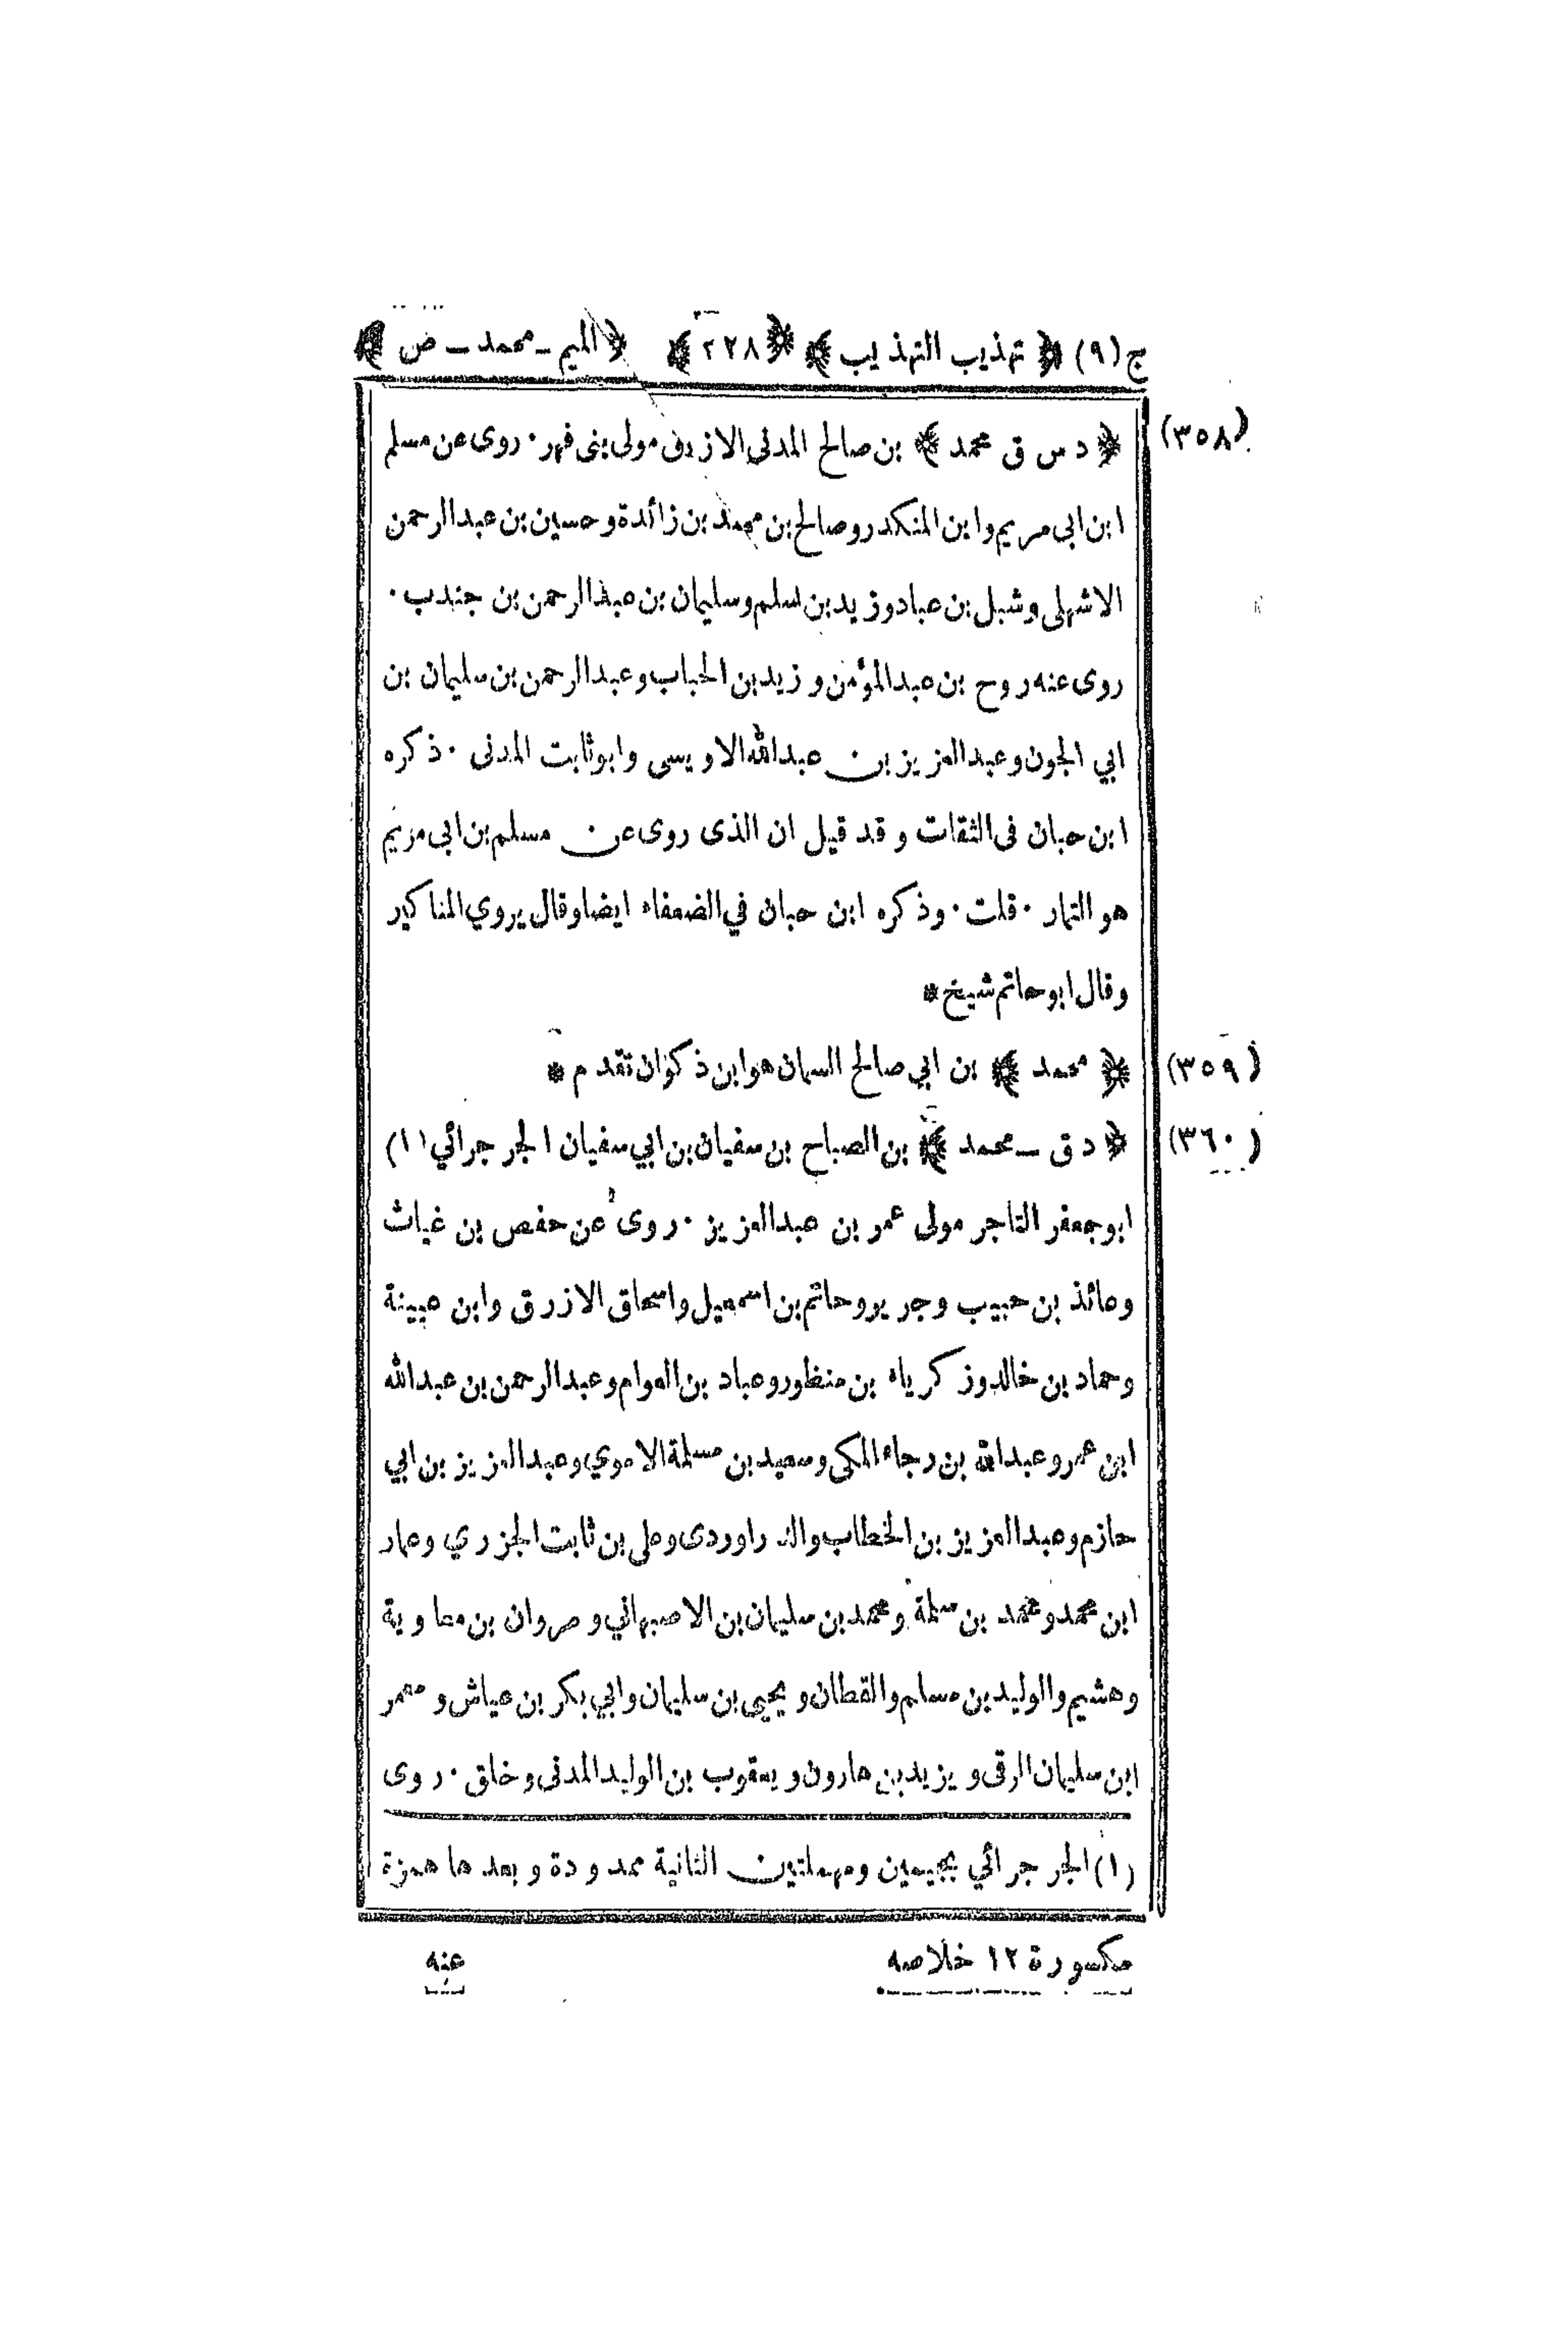 ج(٩) ﴿ تهذيب التهذيب ﴾ ﴿ ٢٢٨ ﴾ ﴿ الميم ـ محمد ـ ص ﴾
(٣٥٨) ﴿ د س ق محمد ﴾ بن صالح المدنى الازرق مولى بنى فهر · روى عن مسلم
ابن ابى مريم وابن المنكدر وصالح بن محمد بن زائدة وحسين بن عبدالرحمن
الاشهلى وشبل بن عباد وزيد بن اسلم وسليمان بن عبدالرحمن بن جندب ·
روى عنه روح بن عبدالمؤمن وزيد بن الحباب وعبدالرحمن بن سليمان بن
ابي الجون وعبدالعزيز بن عبدالله الاويسى وابوثابت المدنى · ذكره
ابن حبان فى الثقات وقد قيل ان الذى روى عن مسلم بن ابى مريم
هو التمار · قلت · وذكره ابن حبان في الضعفاء ايضا وقال يروي المناكير
وقال ابوحاتم شيخ *
(٣٥٩) ﴿ محمد ﴾ بن ابي صالح السمان هو ابن ذكوان تقدم *
(٣٦٠) ﴿ د ق ـ محمد ﴾ بن الصباح بن سفيان بن ابي سفيان الجرجرائي (١)
ابوجعفر التاجر مولى عمر بن عبدالعزيز · روى عن حفص بن غياث
وعائذ بن حبيب وجرير وحاتم بن اسمعيل واسحاق الازرق وابن عيينة
وحماد بن خالد وزكرياء بن منظور وعباد بن العوام وعبدالرحمن بن عبدالله
ابن عمر وعبدالله بن رجاء المكى وسعيد بن مسلمة الاموي وعبدالعزيز بن ابي
حازم وعبدالعزيز بن الخطاب والدراوردى وعلى بن ثابت الجزري وعمار
ابن محمد ومحمد بن سلمة ومحمد بن سليمان بن الاصبهاني ومروان بن معاوية
وهشيم والوليد بن مسلم والقطان ويحيى بن سليمان وابي بكر بن عياش ومعمر
ابن سليمان الرقى ويزيد بن هارون ويعقوب بن الوليد المدنى وخلق · روى
(١) الجرجرائي بجيمين ومهملتين الثانية ممدودة وبعدها همزة
مكسورة ١٢ خلاصه
عنه